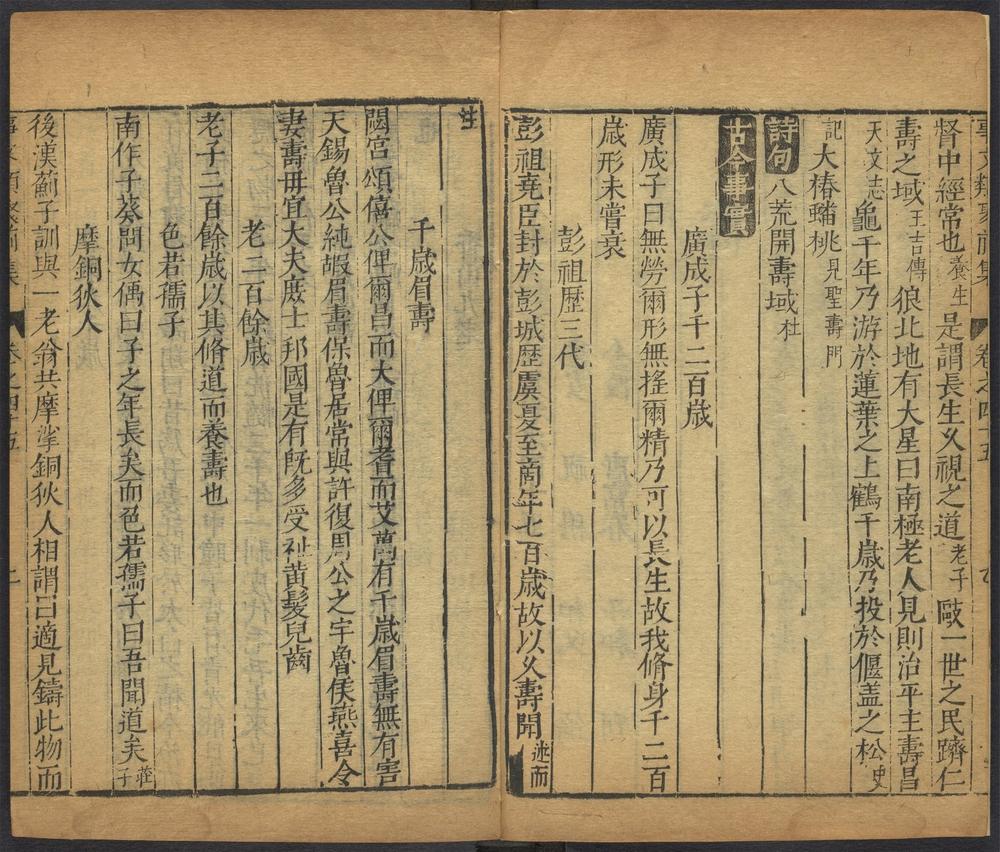 事文類聚前集 卷之四十五
督中經常也養生是謂長生久視之道老子敺一世之民躋仁
壽之域王吉傳狼北地有大星曰南極老人見則治平主壽昌
天文志龜千年乃游於蓮葉之上鶴千歲乃投於偃盖之松史
記大椿蟠桃見聖壽門
詩句八荒開壽域杜
古今事實
廣成子千二百歲
廣成子曰無勞爾形無搖爾精乃可以長生故我脩身千二百
歲形未嘗衰
彭祖歷三代
彭祖堯臣封於彭城歷虞夏至商年七百歲故以久壽聞述而
註
千歲眉壽
閟宮頌僖公俾爾昌而大俾爾耆而艾萬有千歲眉壽無有害
天錫魯公純嘏眉壽保魯居常與許復周公之宇魯侯燕喜令
妻壽毋宜大夫庶士邦國是有旣多受祉黃髮兒齒
老子二百餘歲
老子二百餘歲以其脩道而養壽也
色若孺子
南作子葵問女偊曰子之年長矣而色若孺子曰吾聞道矣莊子
摩銅狄人
後漢薊子訓與一老翁共摩挲銅狄人相謂曰適見鑄此物而
事文類聚前集 卷之四十五 二